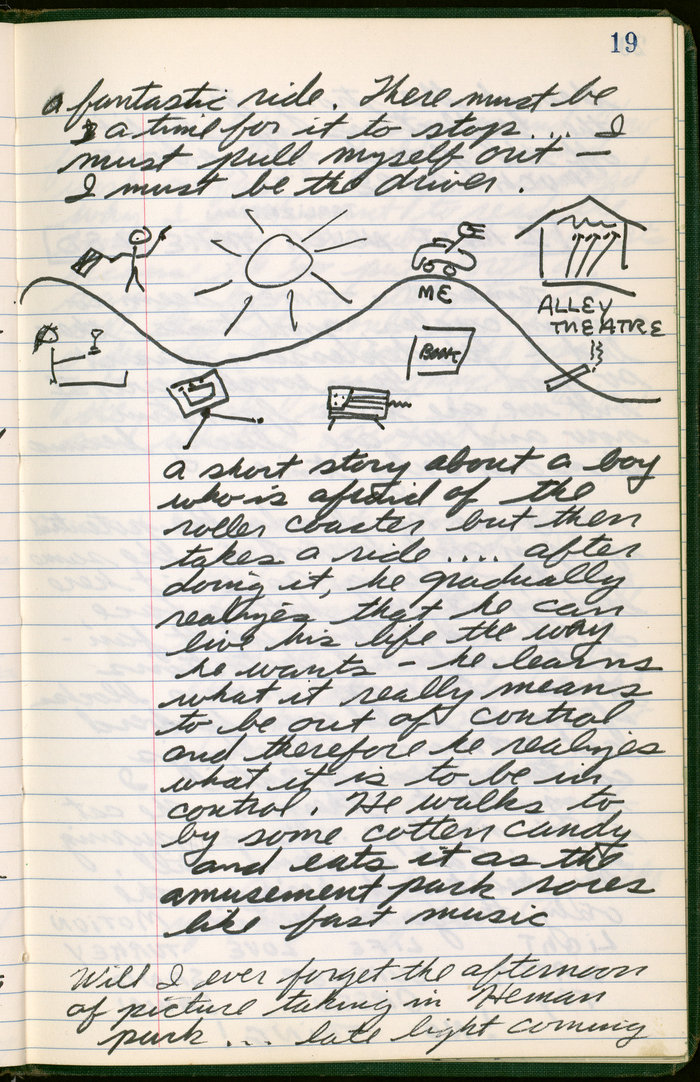 19
a fantastic ride. There must be
a time for it to stop.... I
must pull myself out —
I must be the driver.
ME
ALLEY
THEATRE
BOOK
a short story about a boy
who is afraid of the
roller coaster but then
takes a ride .... after
doing it, he gradually
realizes that he can
live his life the way
he wants - he learns
what it really means
to be out of control
and therefore he realizes
what it is to be in
control. He walks to
by some cotten candy
and eats it as the
amusement park rores
like fast music
Will I ever forget the afternoon
of picture taking in Heman
park ... late light coming